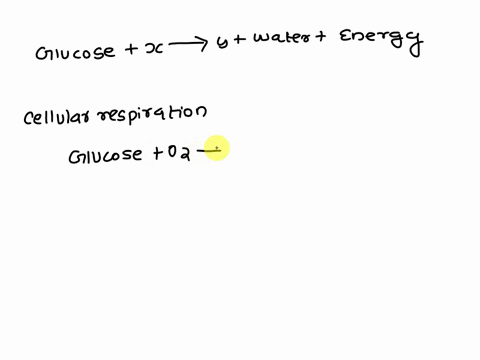 Glucose + x ⟶ y + water + Energy
Cellular respiration
Glucose + O2 —